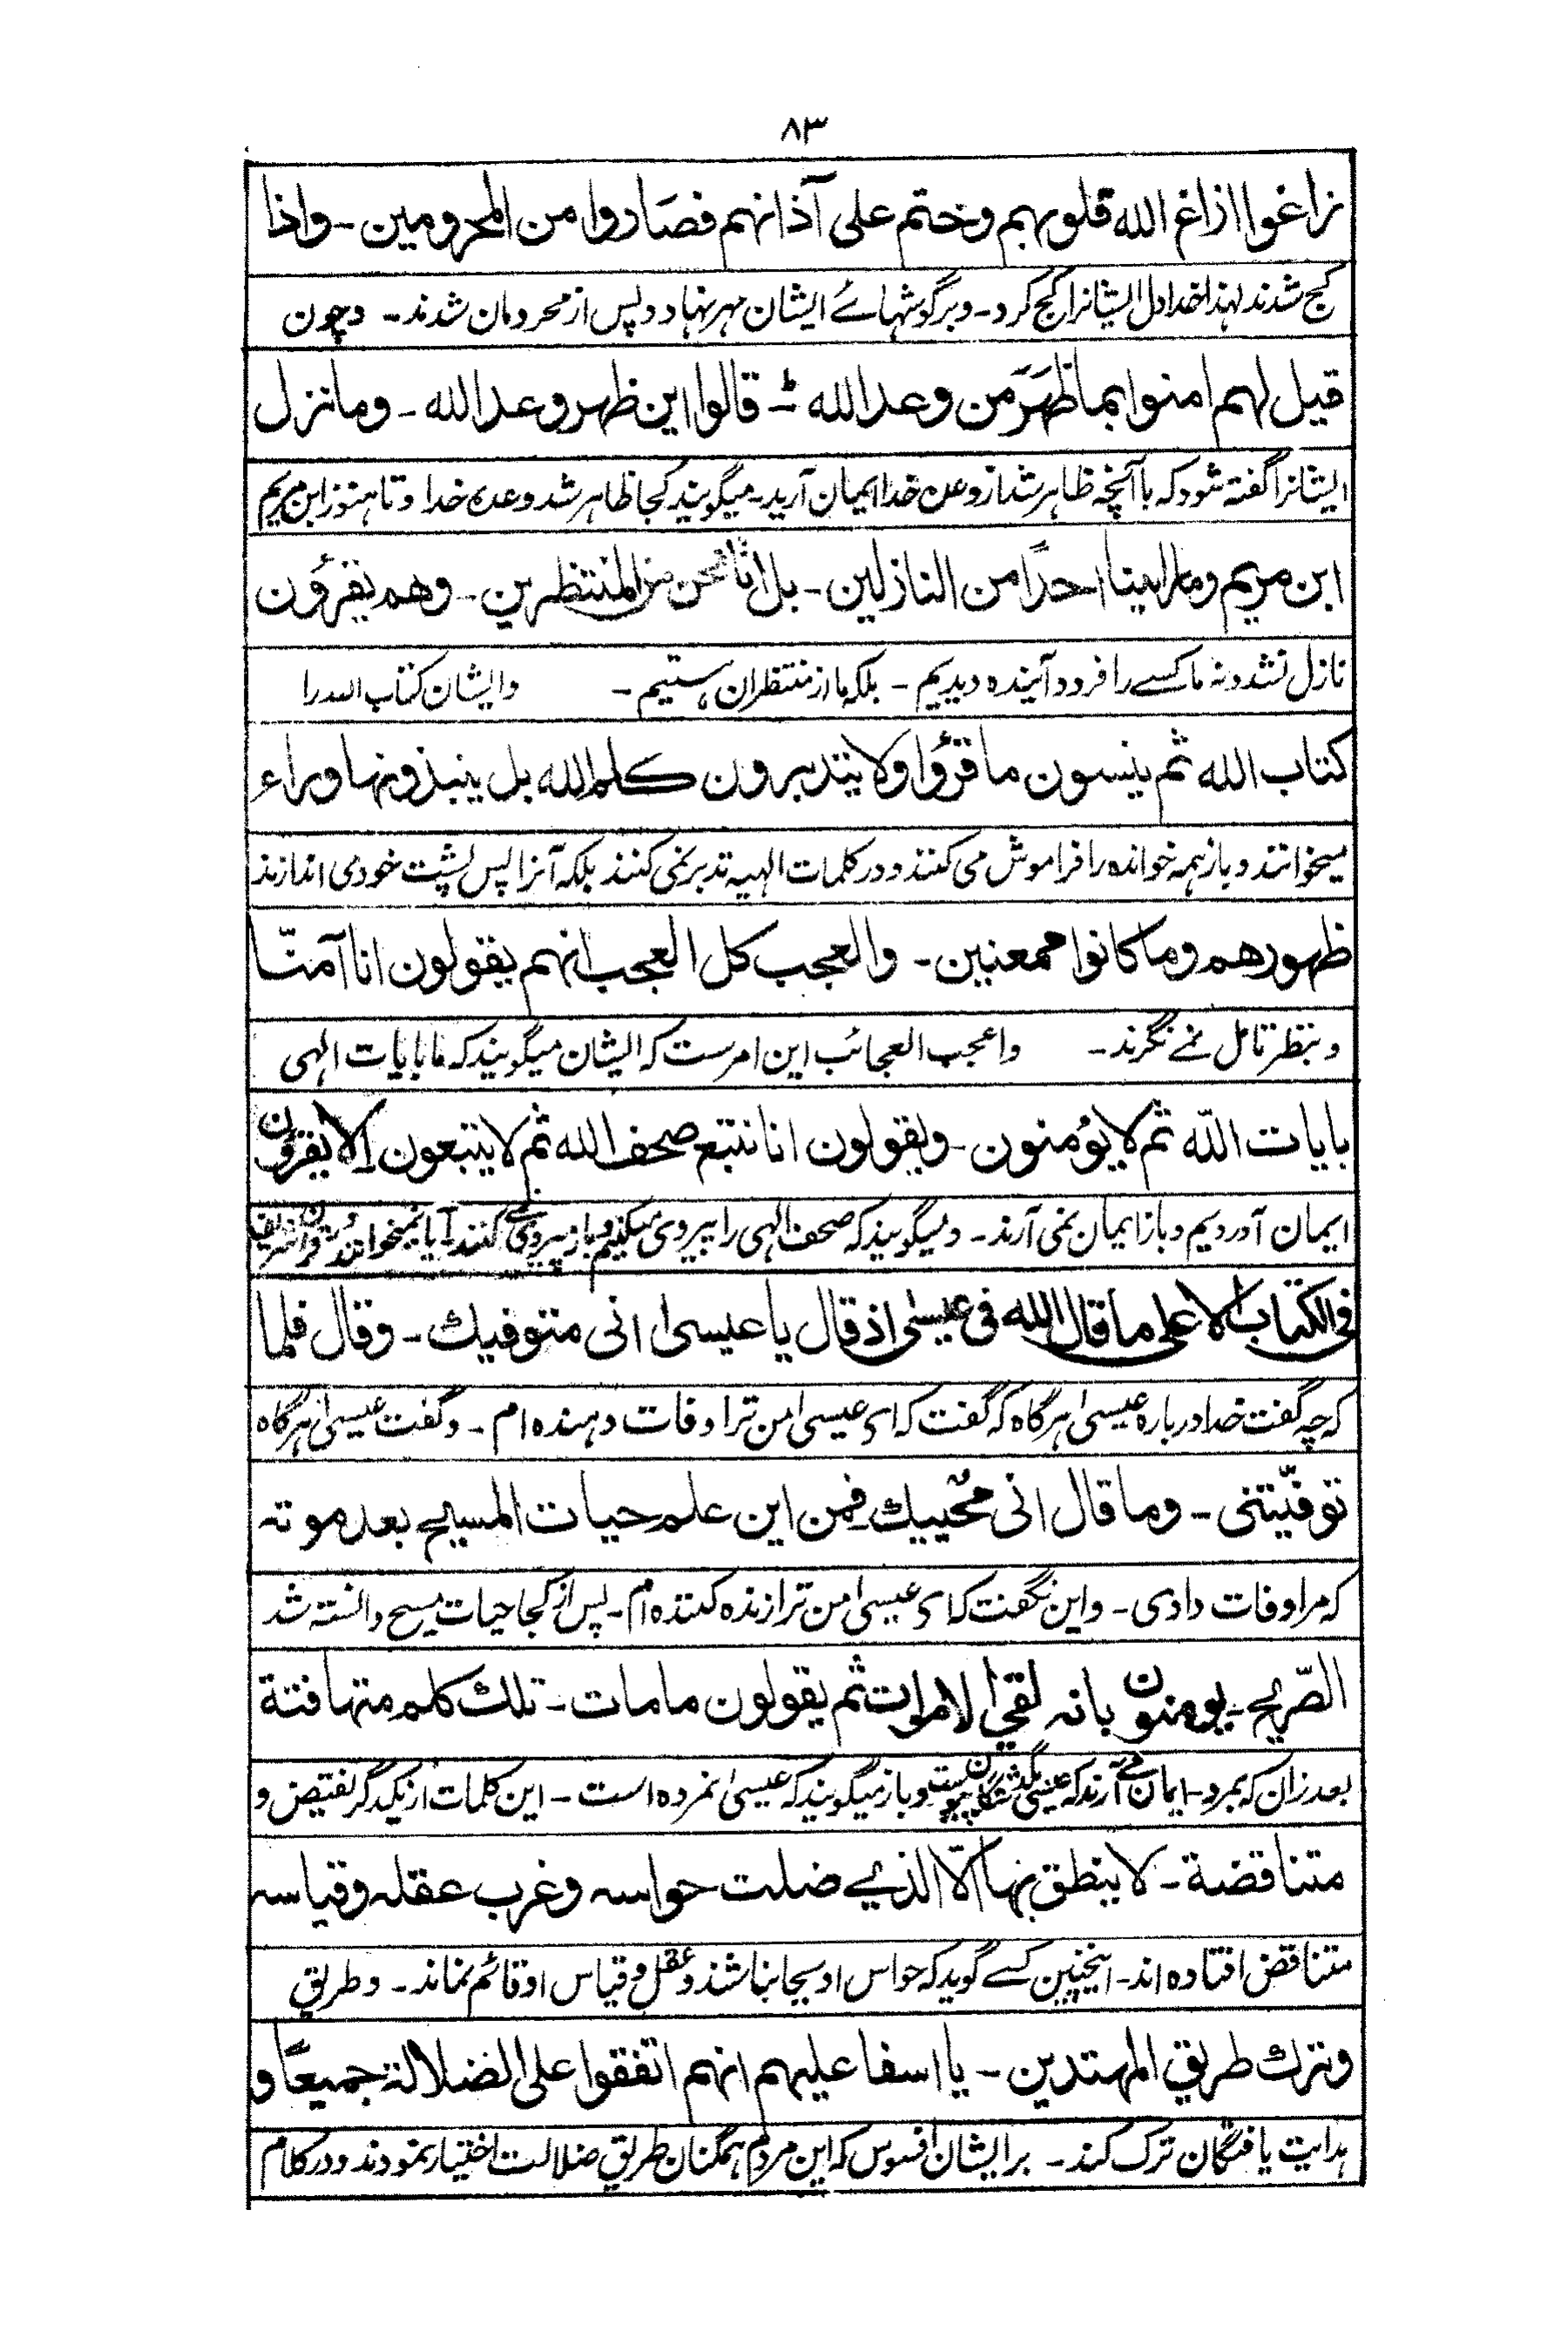 ۸۳
زاغوا ازاغ الله قلوبهم وختم على آذانهم فصاروا من المحرومين ـ واذا
کج شدند لہذا خدا دل ایشانرا کج کرد ـ و برگوشہائے ایشان مہر نہاد و پس از محرومان شدند ـ وچون
قيل لهم امنوا بما ظَهَرَ من وعد الله ـ قالوا اين ظهر وعد الله ـ وما نزل
ایشانرا گفتہ شود کہ باآنچہ ظاہر شد از وعدہ خدا ایمان آرید ـ میگویند کجا ظاہر شد وعدہ خدا و تا ہنوز ابن مریم
ابن مريم وما راينا احدًا من النازلين ـ بل انّا نحن من المنتظرين ـ وهم يقرءُون
نازل نشد و نہ ما کسے را فرود آیندہ دیدیم ـ بلکہ ما از منتظران ہستیم ـ وایشان کتاب اللہ را
كتاب الله ثم ينسون ما قرؤُا ولا يتدبرون كلم الله بل ينبذونها وراء
میخوانند و باز ہمہ خواندہ را فراموش می کنند و در کلمات الہیہ تدبر نمی کنند بلکہ آنرا پس پشت خود می اندازند
ظهورهم وما كانوا ممعنين ـ والعجب كل العجب انهم يقولون انا آمنّا
و بنظر تامل نمے نگرند ـ و اعجب العجائب این امرست کہ ایشان میگویند کہ ما بایات الہی
بايات اللّٰه ثم لا يؤمنون ـ ويقولون انا نتبع صحف الله ثم لا يتبعون الا يقرؤن
ایمان آوردیم و باز ایمان نمی آرند ـ و میگویند کہ صحف الہی را پیروی میکنیم و باز پیروی نمے کنند آیا نمیخوانند در قرآن شریف
فى الكتاب الاعلى ما قال الله فى عيسٰى اذ قال يا عيسىٰ انى متوفيك ـ وقال فلما
کہ چہ گفت خدا دربارہ عیسیٰ ہرگاہ کہ گفت کہ ای عیسیٰ من ترا وفات دہندہ ام ـ و گفت عیسیٰ ہرگاہ
توفّيتنى ـ وما قال انى محُييك فمن اين علم حيات المسيح بعد موته
کہ مرا وفات دادی ـ و این نگفت کہ ای عیسیٰ من ترا زندہ کنندہ ام ـ پس از کجا حیات مسیح دانستہ شد
الصّريح ـ يومنون بانه لقى الاموات ثم يقولون ما مات ـ تلك كلم متهافتة
بعد زان کہ بمرد ـ ایمان مے آرند کہ عیسیٰ بگذشتگان پیوست و باز میگویند کہ عیسیٰ نمردہ است ـ این کلمات از یکدگر نقیض و
متناقضة ـ لا ينطق بها الّا الذى ضلت حواسه وغرب عقله وقياسه
متناقض افتادہ اند ـ اینچنین کسے گوید کہ حواس او بیجا نباشند و عقل و قیاس او قائم نماند ـ و طریق
وترك طريق المهتدين ـ يا اسفا عليهم انهم اتفقوا على الضلالة جميعًا و
ہدایت یافتگان ترک کند ـ بر ایشان افسوس کہ این مردم ہمگنان طریق ضلالت اختیار نمودند و در کلام